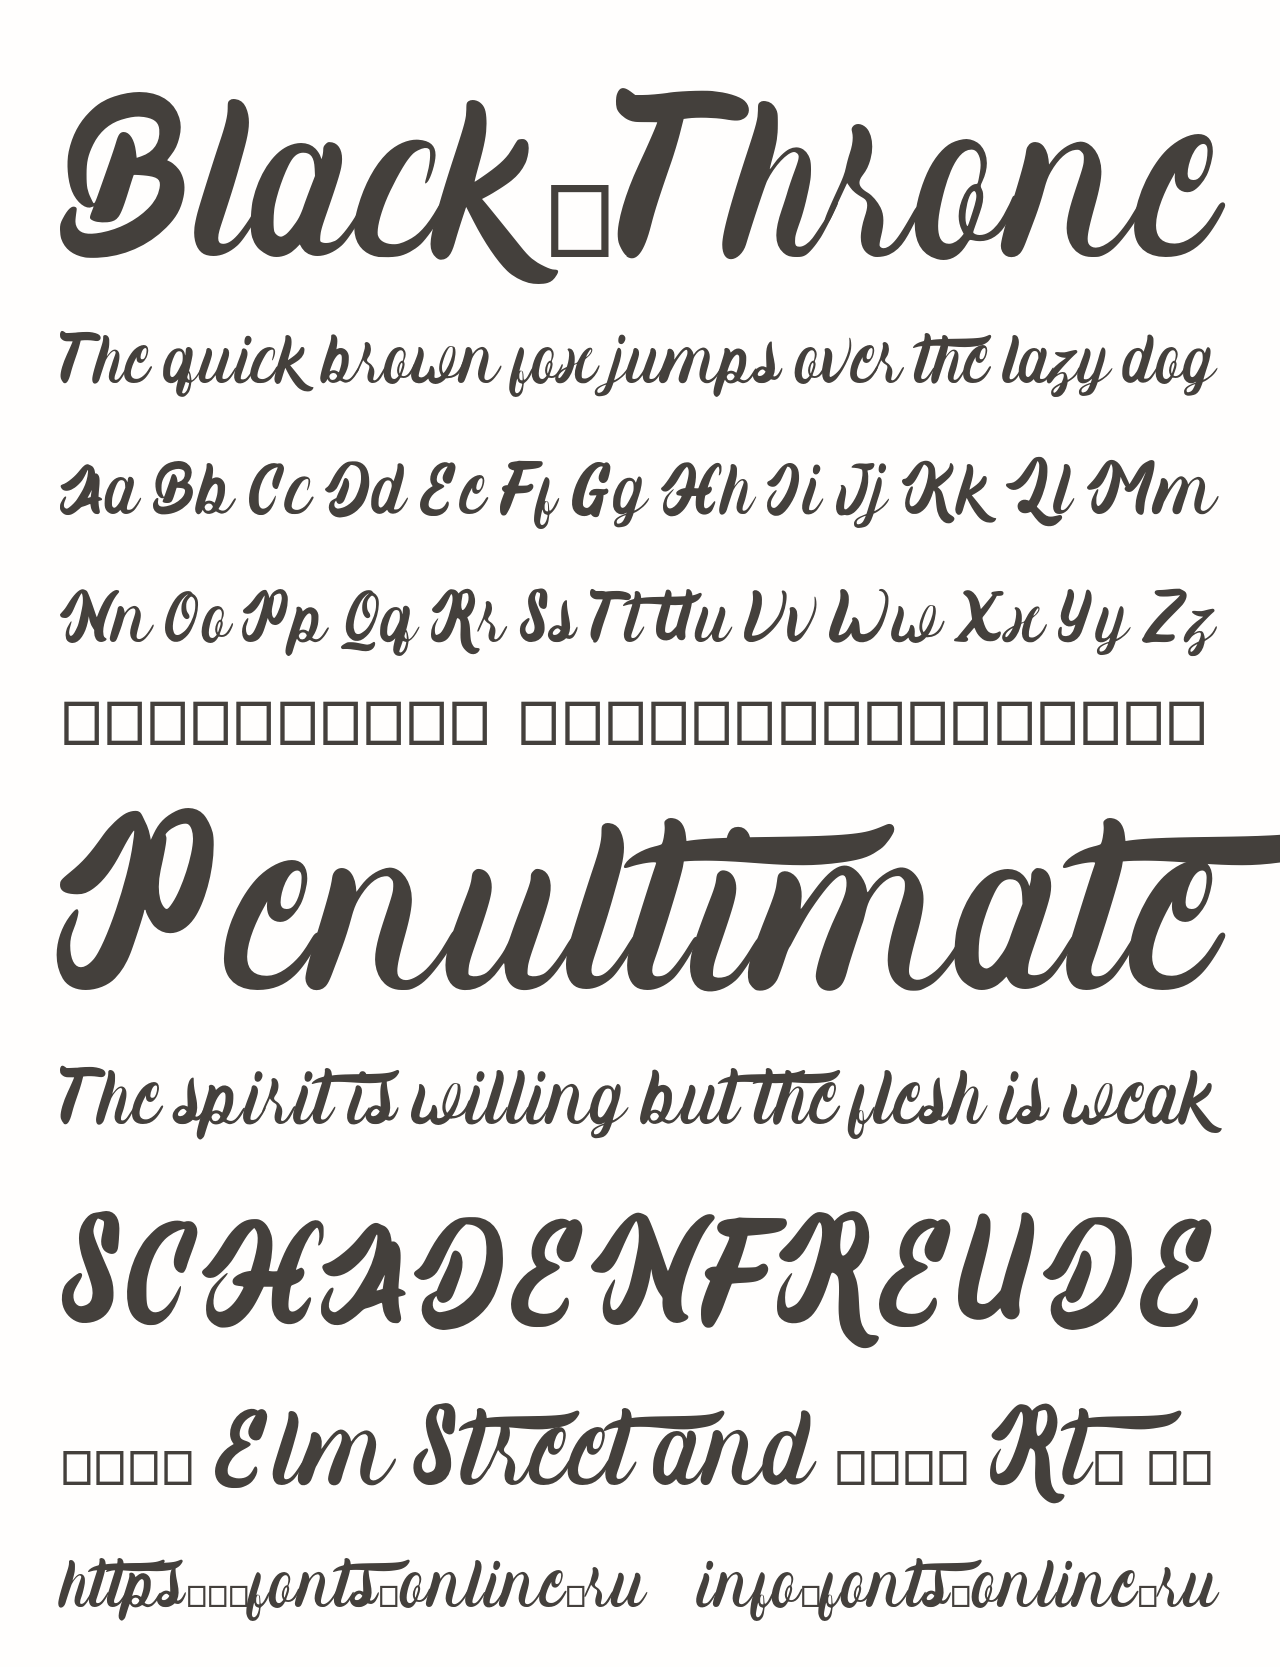 Black□Throne
The quick brown fox jumps over the lazy dog
Aa Bb Cc Dd Ee Ff Gg Hh Ii Jj Kk Ll Mm
Nn Oo Pp Qq Rr Ss Tt Uu Vv Ww Xx Yy Zz
□□□□□□□□□□ □□□□□□□□□□□□□□□□
Penultimate
The spirit is willing but the flesh is weak
SCHADENFREUDE
□□□□ Elm Street and □□□□ Rt□ □□
https□□□fonts□online□ru info□fonts□online□ru